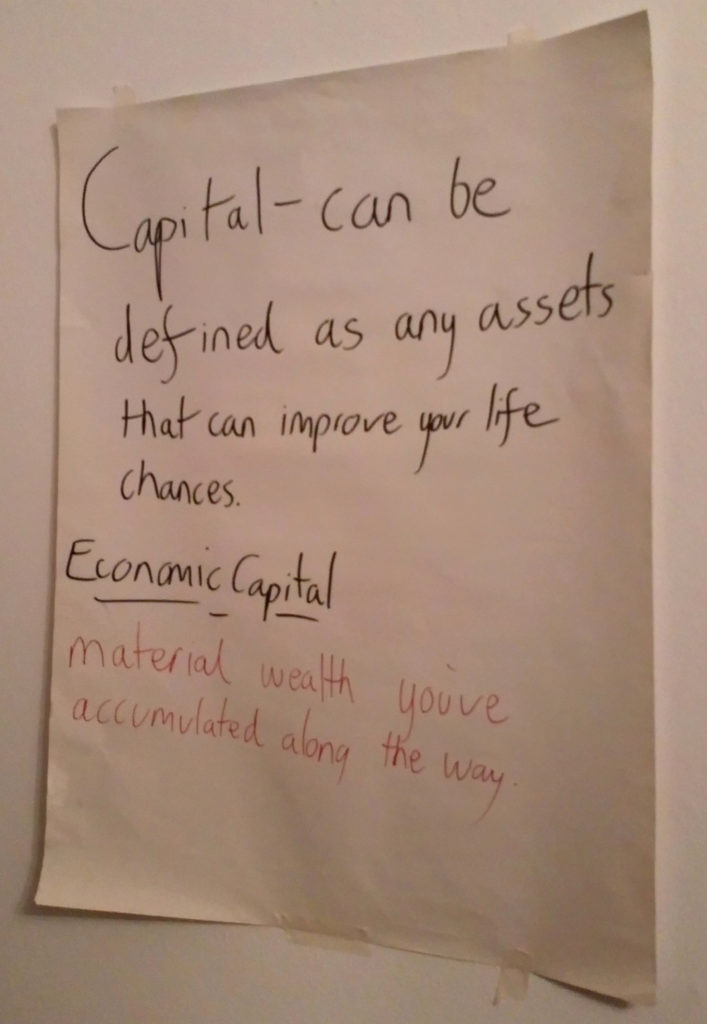 Capital - can be
defined as any assets
that can improve your life
chances.
Economic Capital
material wealth you've
accumulated along the way.